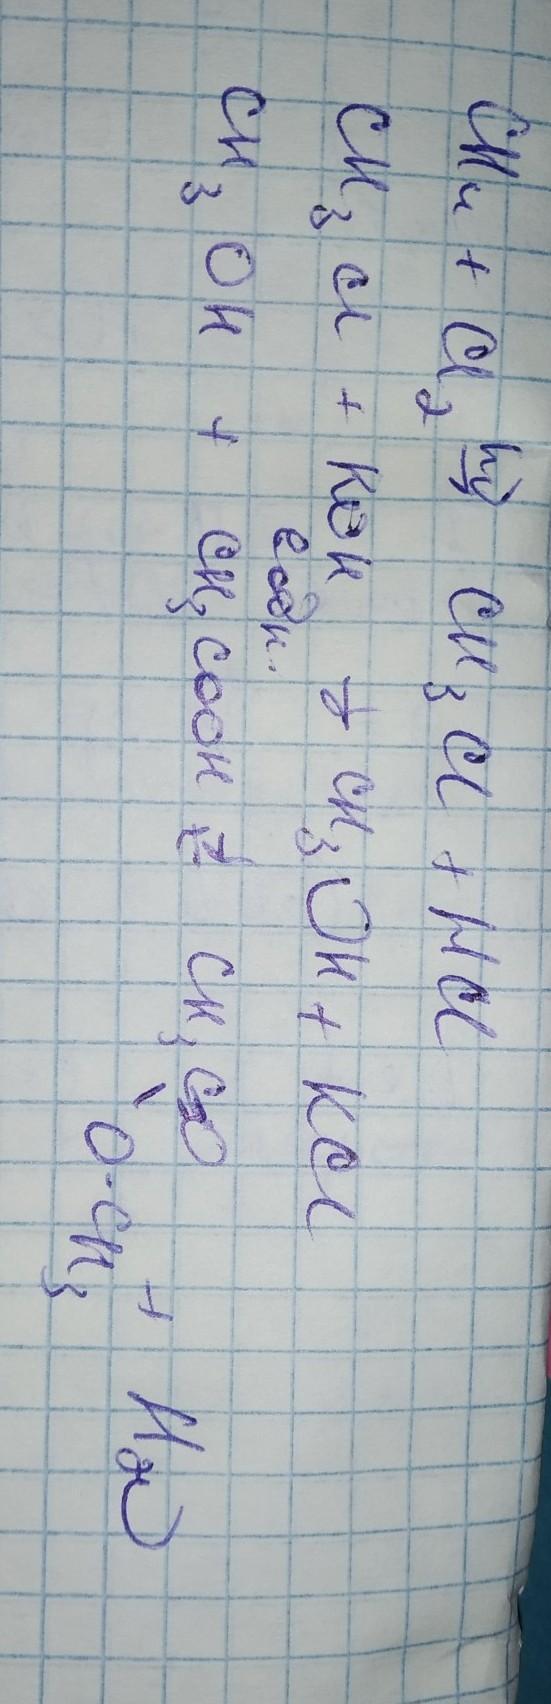 CH4 + Cl2 hν→ CH3Cl + HCl
CH3Cl + KOH → CH3OH + KCl
CH3OH + CH3COOH ⇄ CH3C=O + H2O
O-CH3